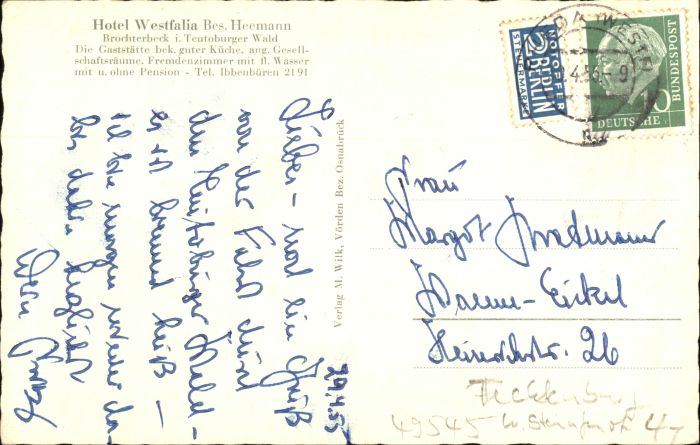 Hotel Westfalia Bes. Heemann
Brochterbeck i. Teutoburger Wald
Die Gaststätte bek. guter Küche, ang. Gesell-
schaftsräume. Fremdenzimmer mit fl. Wasser
mit u. ohne Pension - Tel. Ibbenbüren 2191
29.4.55
Lieber - noch ein Gruß
von der Fahrt durch
den Teutoburger Wald -
es ist brennend heiß -
ich bin morgen wieder da-
Verlag M. Wilk, Vörden Bez. Osnabrück
NOTOPFER
2 BERLIN
STEUERMARKE
(WESTF
.4.55-9
DEUTSCHE BUNDESPOST
10
Frau
Margot
Wanne-Eickel
Heinrichstr. 26
Tecklenburg
49545 Kr. Steinfurt 4/7